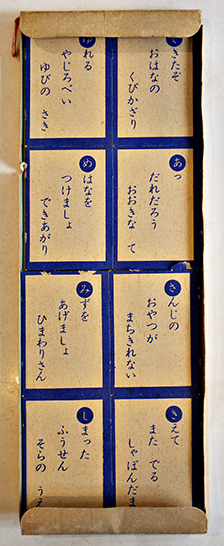 できたぞ
おはなの
くびかざり
ゆれる
やじろべい
ゆびの さき
あっ
だれだろう
おおきな て
めはなを
つけましょ
できあがり
さんじの
おやつが
まちきれない
みずを
あげましょ
ひまわりさん
きえて
また でる
しゃぼんだま
しまった
ふうせん
そらの うえ